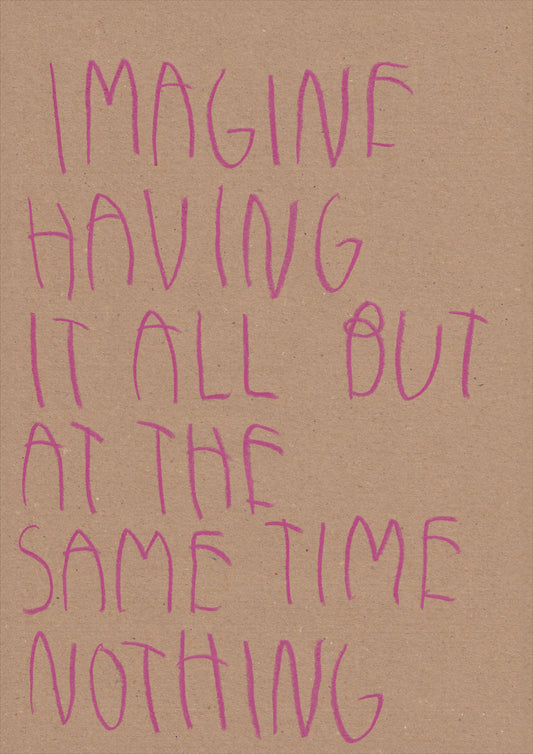 IMAGINE
HAVING
IT ALL BUT
AT THE
SAME TIME
NOTHING